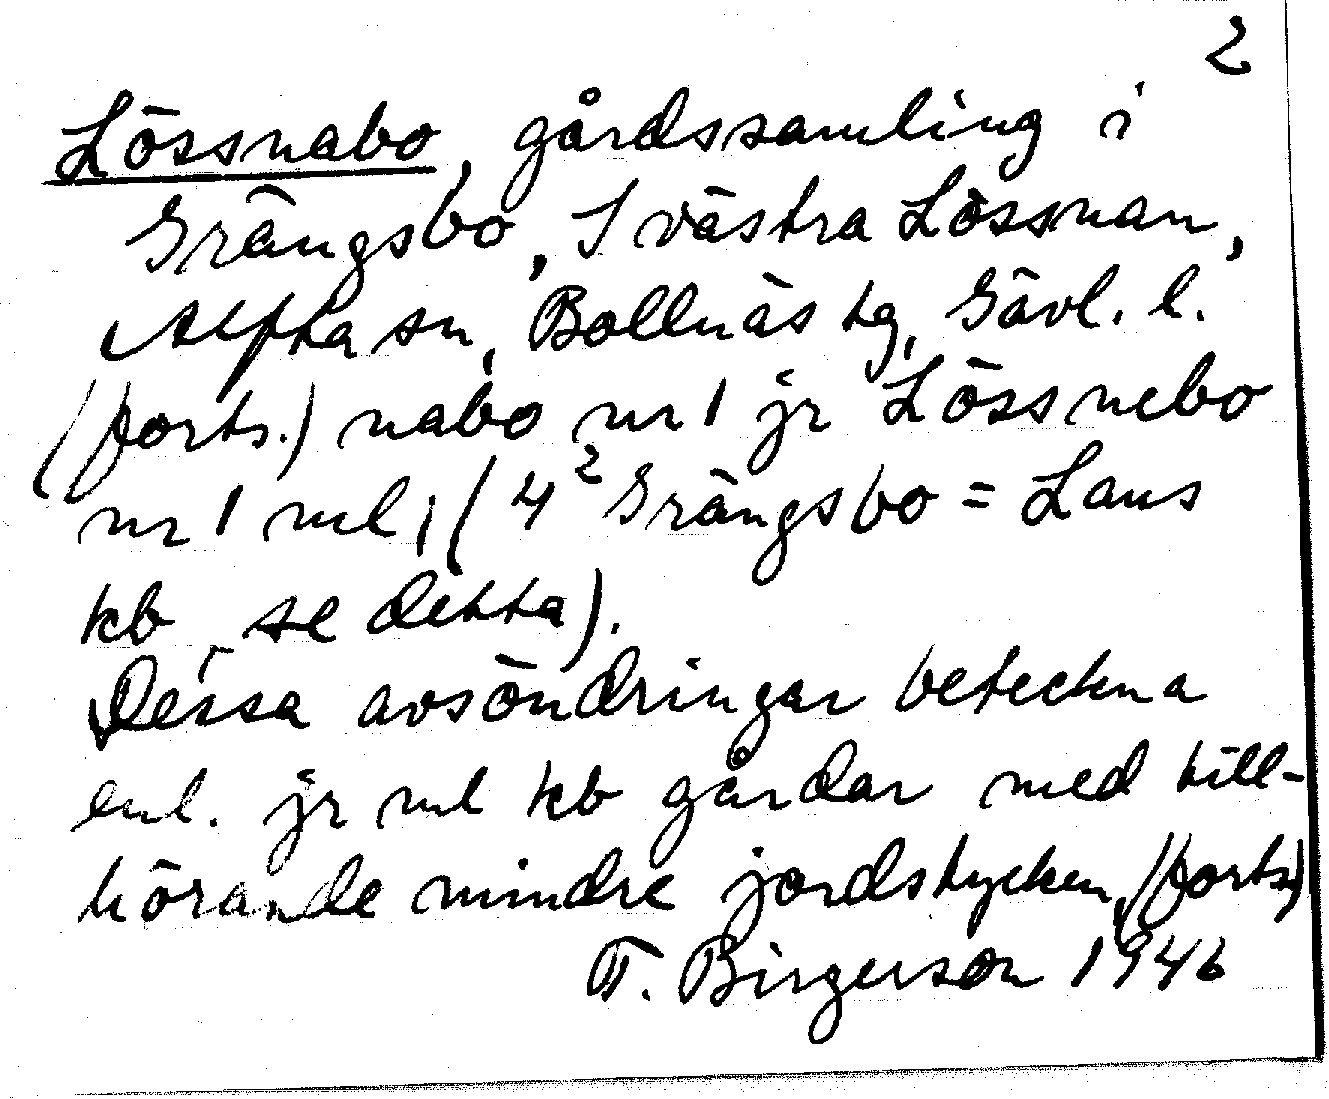 2
Lössnabo, gårdssamling i
Grängsbo, I västra Lössnan,
Alfta sn, Bollnäs tg, Gävl. l.
(forts.) nabo nr 1 jr Lössnebo
nr 1 ml; (4² Grängsbo = Laus
kb, se detta).
Dessa avsöndringar beteckna
enl. jr ml kb gårdar med till-
hörande mindre jordstycken, (forts)
T. Birgerson 1946